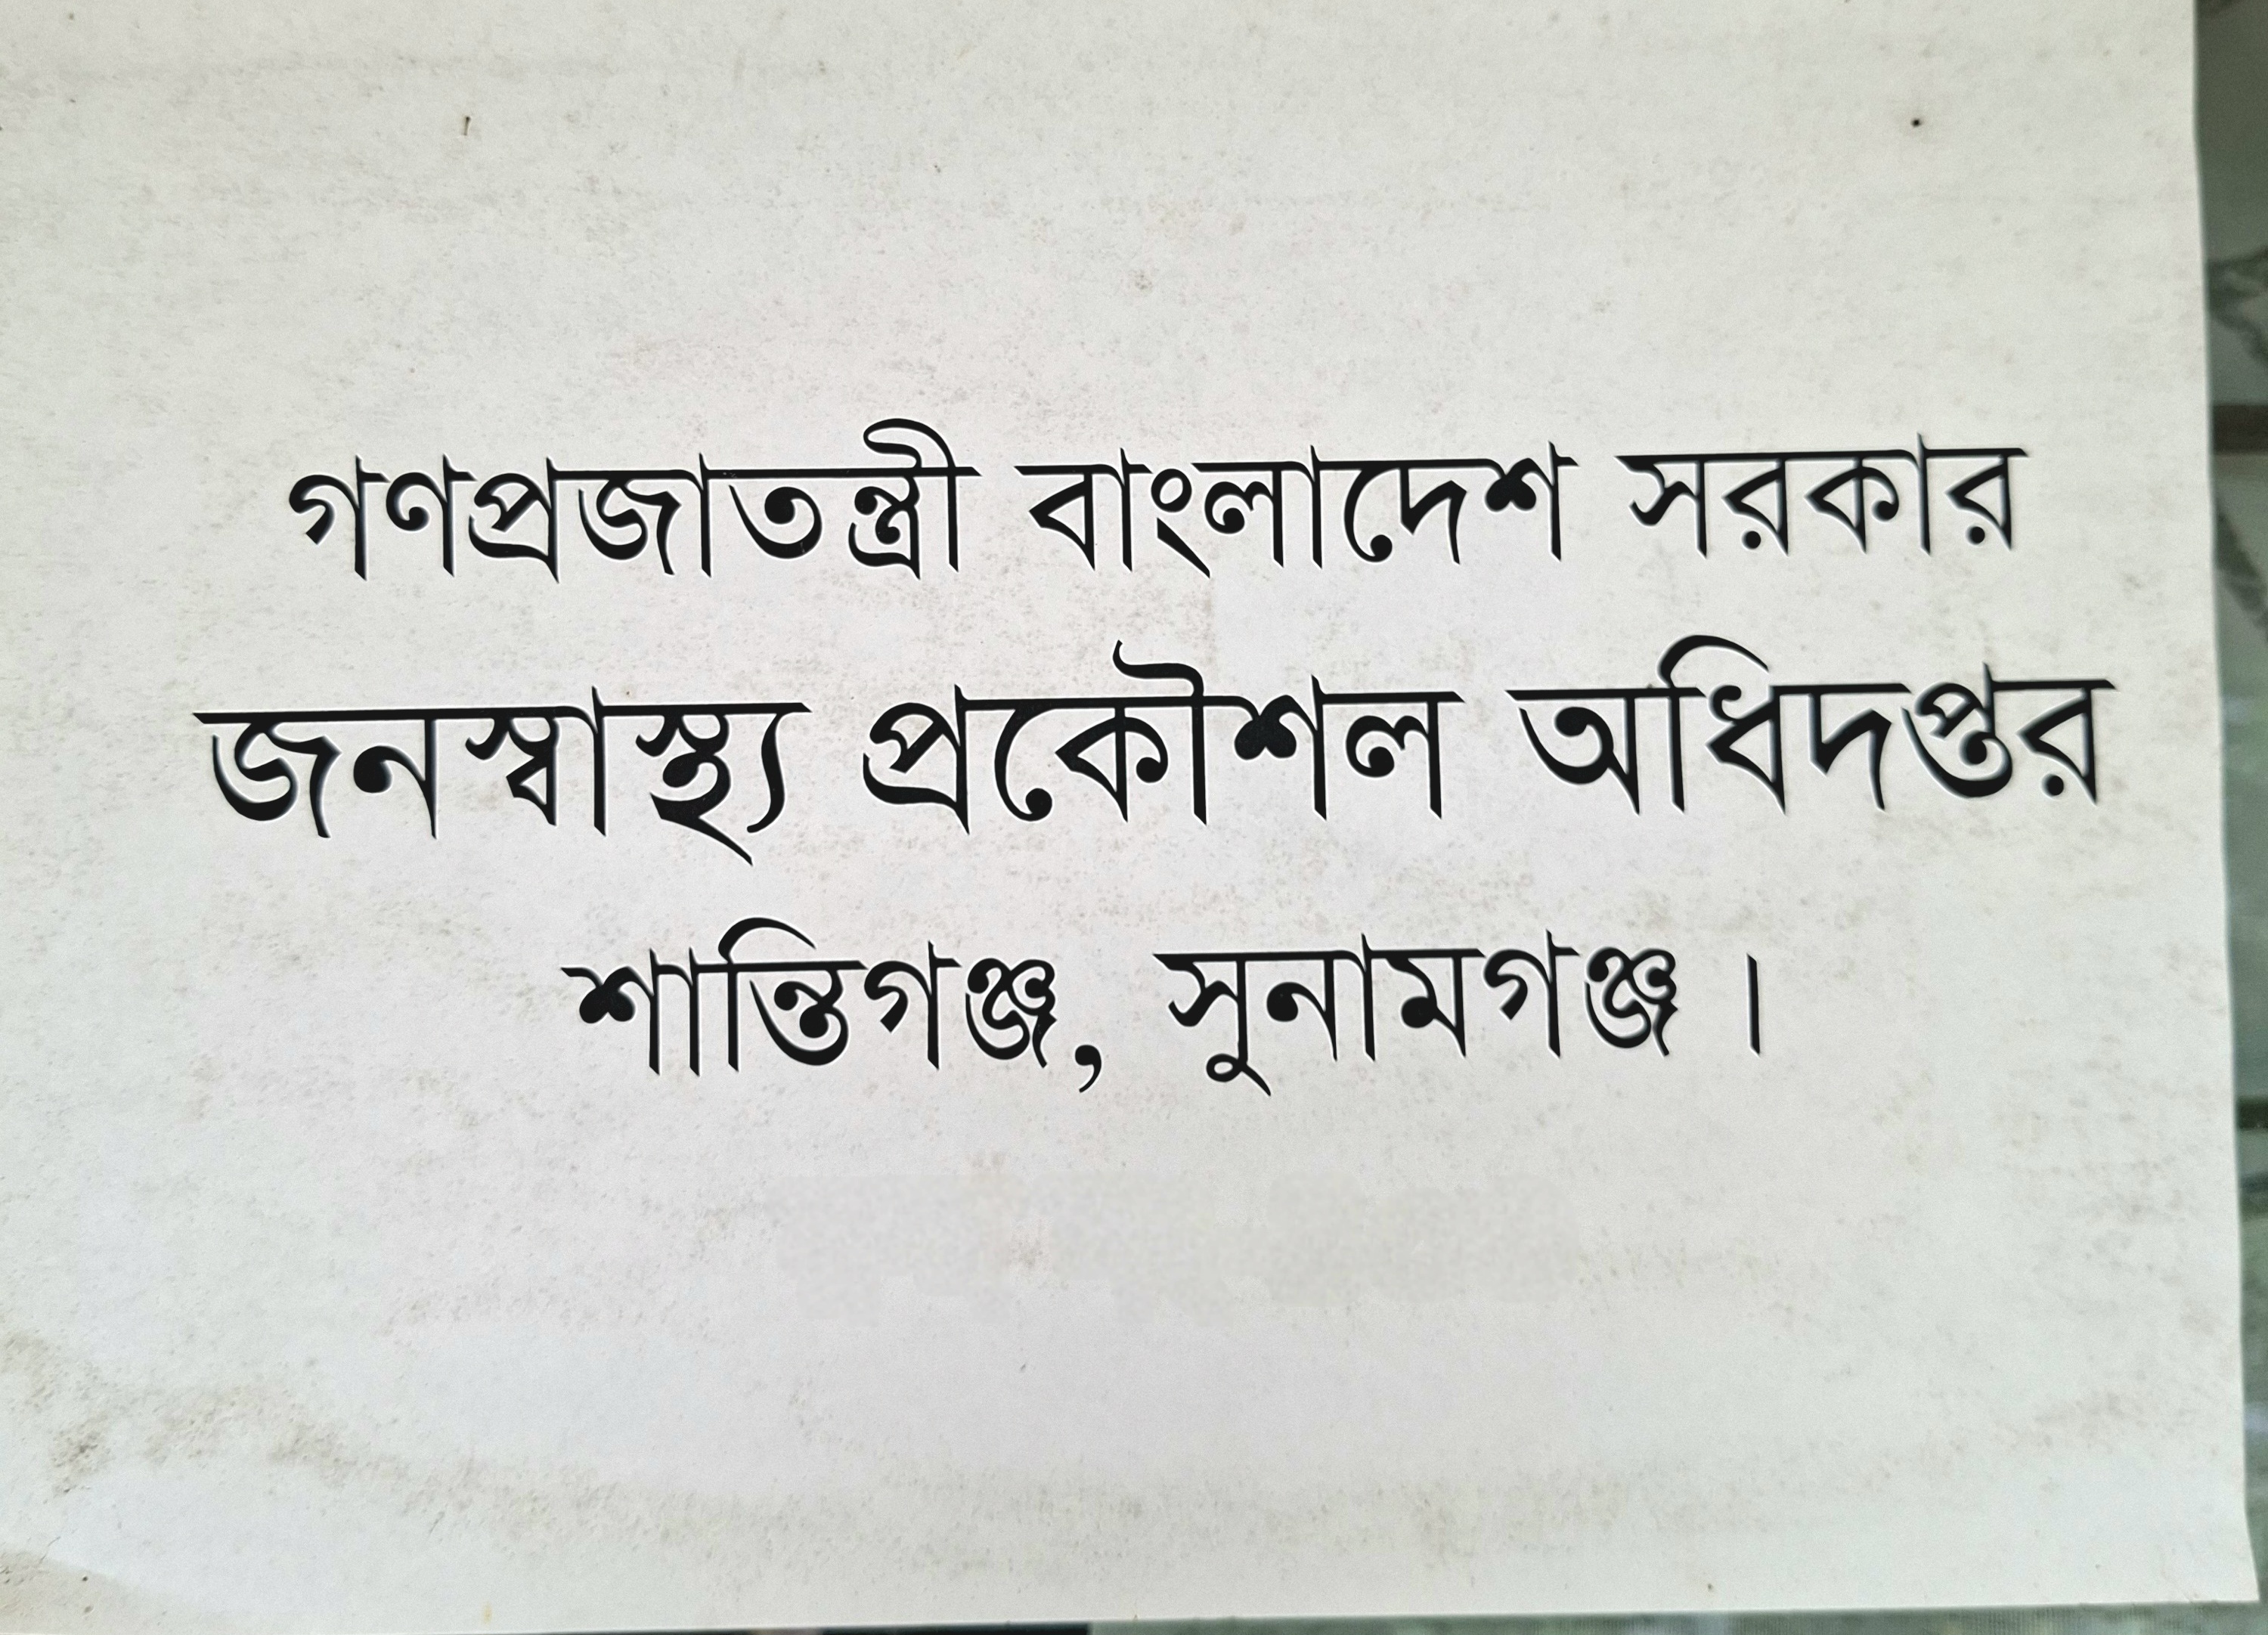 গণপ্রজাতন্ত্রী বাংলাদেশ সরকার
জনস্বাস্থ্য প্রকৌশল অধিদপ্তর
শান্তিগঞ্জ, সুনামগঞ্জ ।